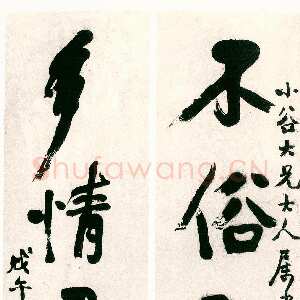 小谷大兄大人属
不俗
多情
戊午
Shufawang.CN